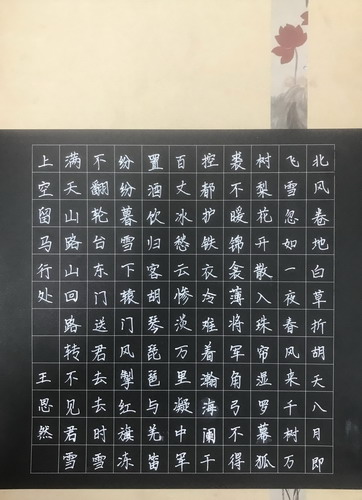 北风卷地白草折胡天八月即
飞雪忽如一夜春风来千树万
树梨花开散入珠帘湿罗幕狐
裘不暖锦衾薄将军角弓不得
控都护铁衣冷难着瀚海阑干
百丈冰愁云惨淡万里凝中军
置酒饮归客胡琴琵琶与羌笛
纷纷暮雪下辕门风掣红旗冻
不翻轮台东门送君去去时雪
满天山路山回路转不见君雪
上空留马行处
王恩然